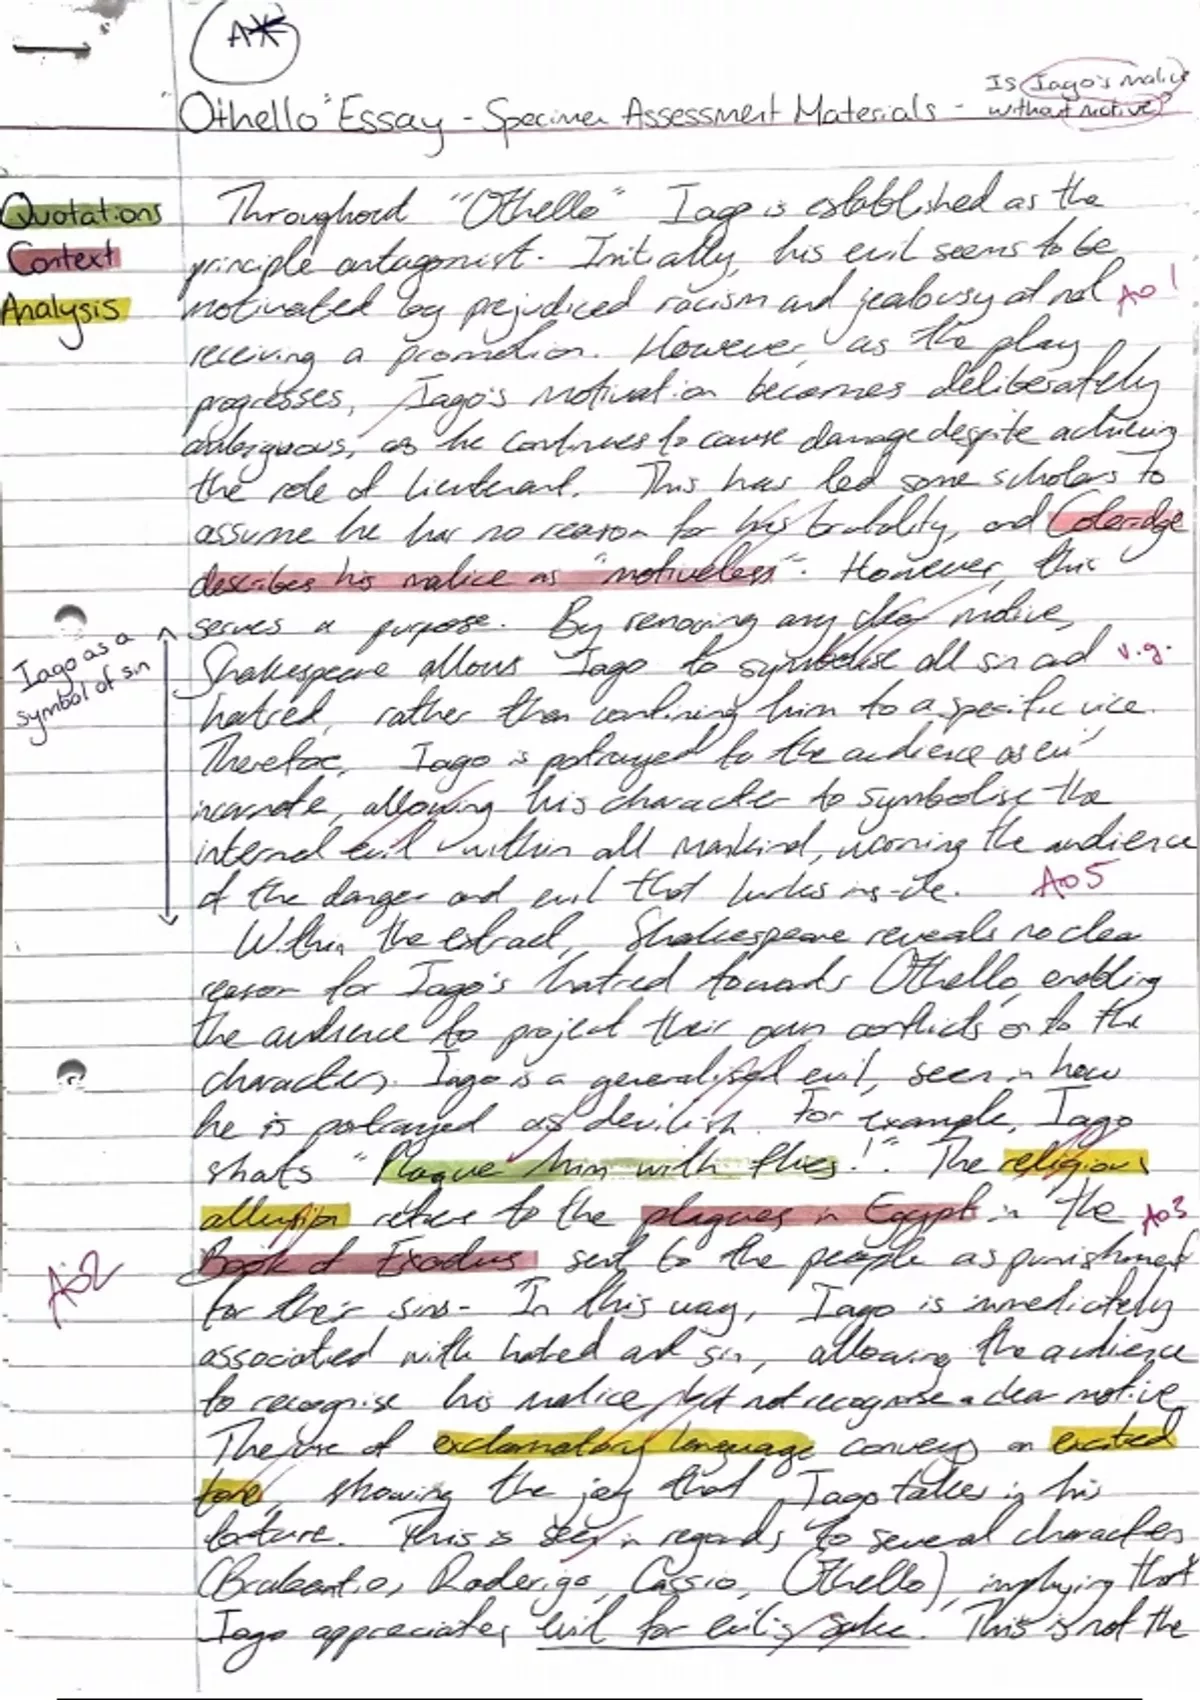 A*
Is Iago's malice
without motive?
"Othello" Essay - Specimen Assessment Materials -
Quotations
Context
Analysis
Throughout "Othello" Iago is established as the
principle antagonist. Initially, his evil seems to be
motivated by prejudiced racism and jealousy at not
AO1
receiving a promotion. However, as the play
progresses, Iago's motivation becomes deliberately
ambiguous, as he continues to cause damage despite achieving
the role of lieutenant. This has led some scholars to
assume he has no reason for his brutality, and Coleridge
describes his malice as "motiveless". However, this
serves a purpose. By removing any clear motive,
Iago as a
symbol of sin
Shakespeare allows Iago to symbolise all sin and
v.g.
hatred, rather than confining him to a specific vice.
Therefore, Iago is portrayed to the audience as evil
incarnate, allowing his character to symbolise the
internal evil within all mankind, warning the audience
of the danger and evil that lurks inside.
AO5
Within the extract, Shakespeare reveals no clear
reason for Iago's hatred towards Othello, enabling
the audience to project their own conflicts onto the
characters. Iago is a generalised evil, seen in how
he is portrayed as devilish. For example, Iago
shouts "Plague him with flies!". The religious
allusion refers to the plagues in Egypt in the
AO3
Book of Exodus sent to the people as punishment
AO2
for their sins. In this way, Iago is immediately
associated with hatred and sin, allowing the audience
to recognise his malice but not recognise a clear motive.
The use of exclamatory language conveys an excited
tone, showing the joy that Iago takes in his
torture. This is seen in regards to several characters
(Brabantio, Roderigo, Cassio, Othello), implying that
Iago appreciates evil for evil's sake. This is not the